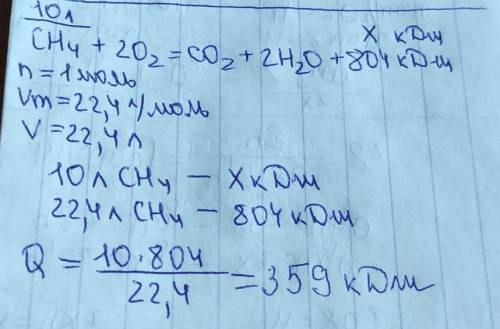 10л
X кДж
CH₄ + 2O₂ = CO₂ + 2H₂O + 804 кДж
n = 1 моль
Vm = 22,4 л/моль
V = 22,4 л
10л CH₄ – X кДж
22,4л CH₄ – 804 кДж
Q = 10·804 / 22,4 = 359 кДж